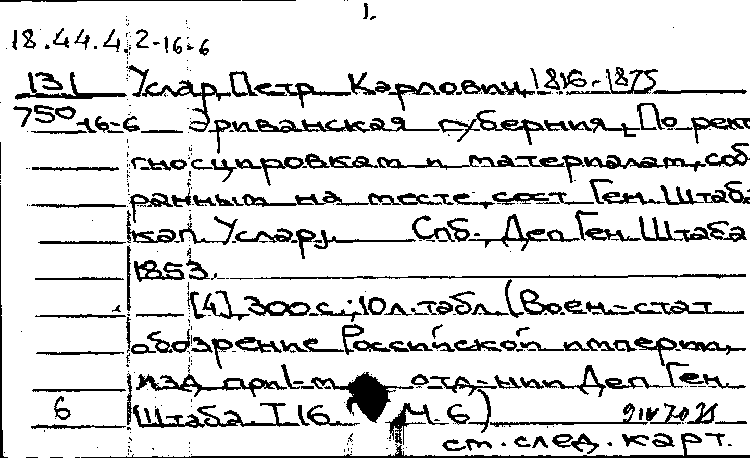 1.
18.44.4.2-16-6
131 Услар, Петр Карлович, 1816-1875
750 16-6 Эриванская губерния, [По реко
гносцировкам и материалам, соб
ранным на месте, сост. Ген. Штаба
кап. Услар].   Спб., Деп. Ген. Штаба
1853.
[4], 300 с.; 10 л. табл. (Воен.-стат
обозрение Российской империи,
изд. при 1-м отд-нии Деп. Ген.
6 Штаба. Т. 16 Ч. 6)
см. след. карт.